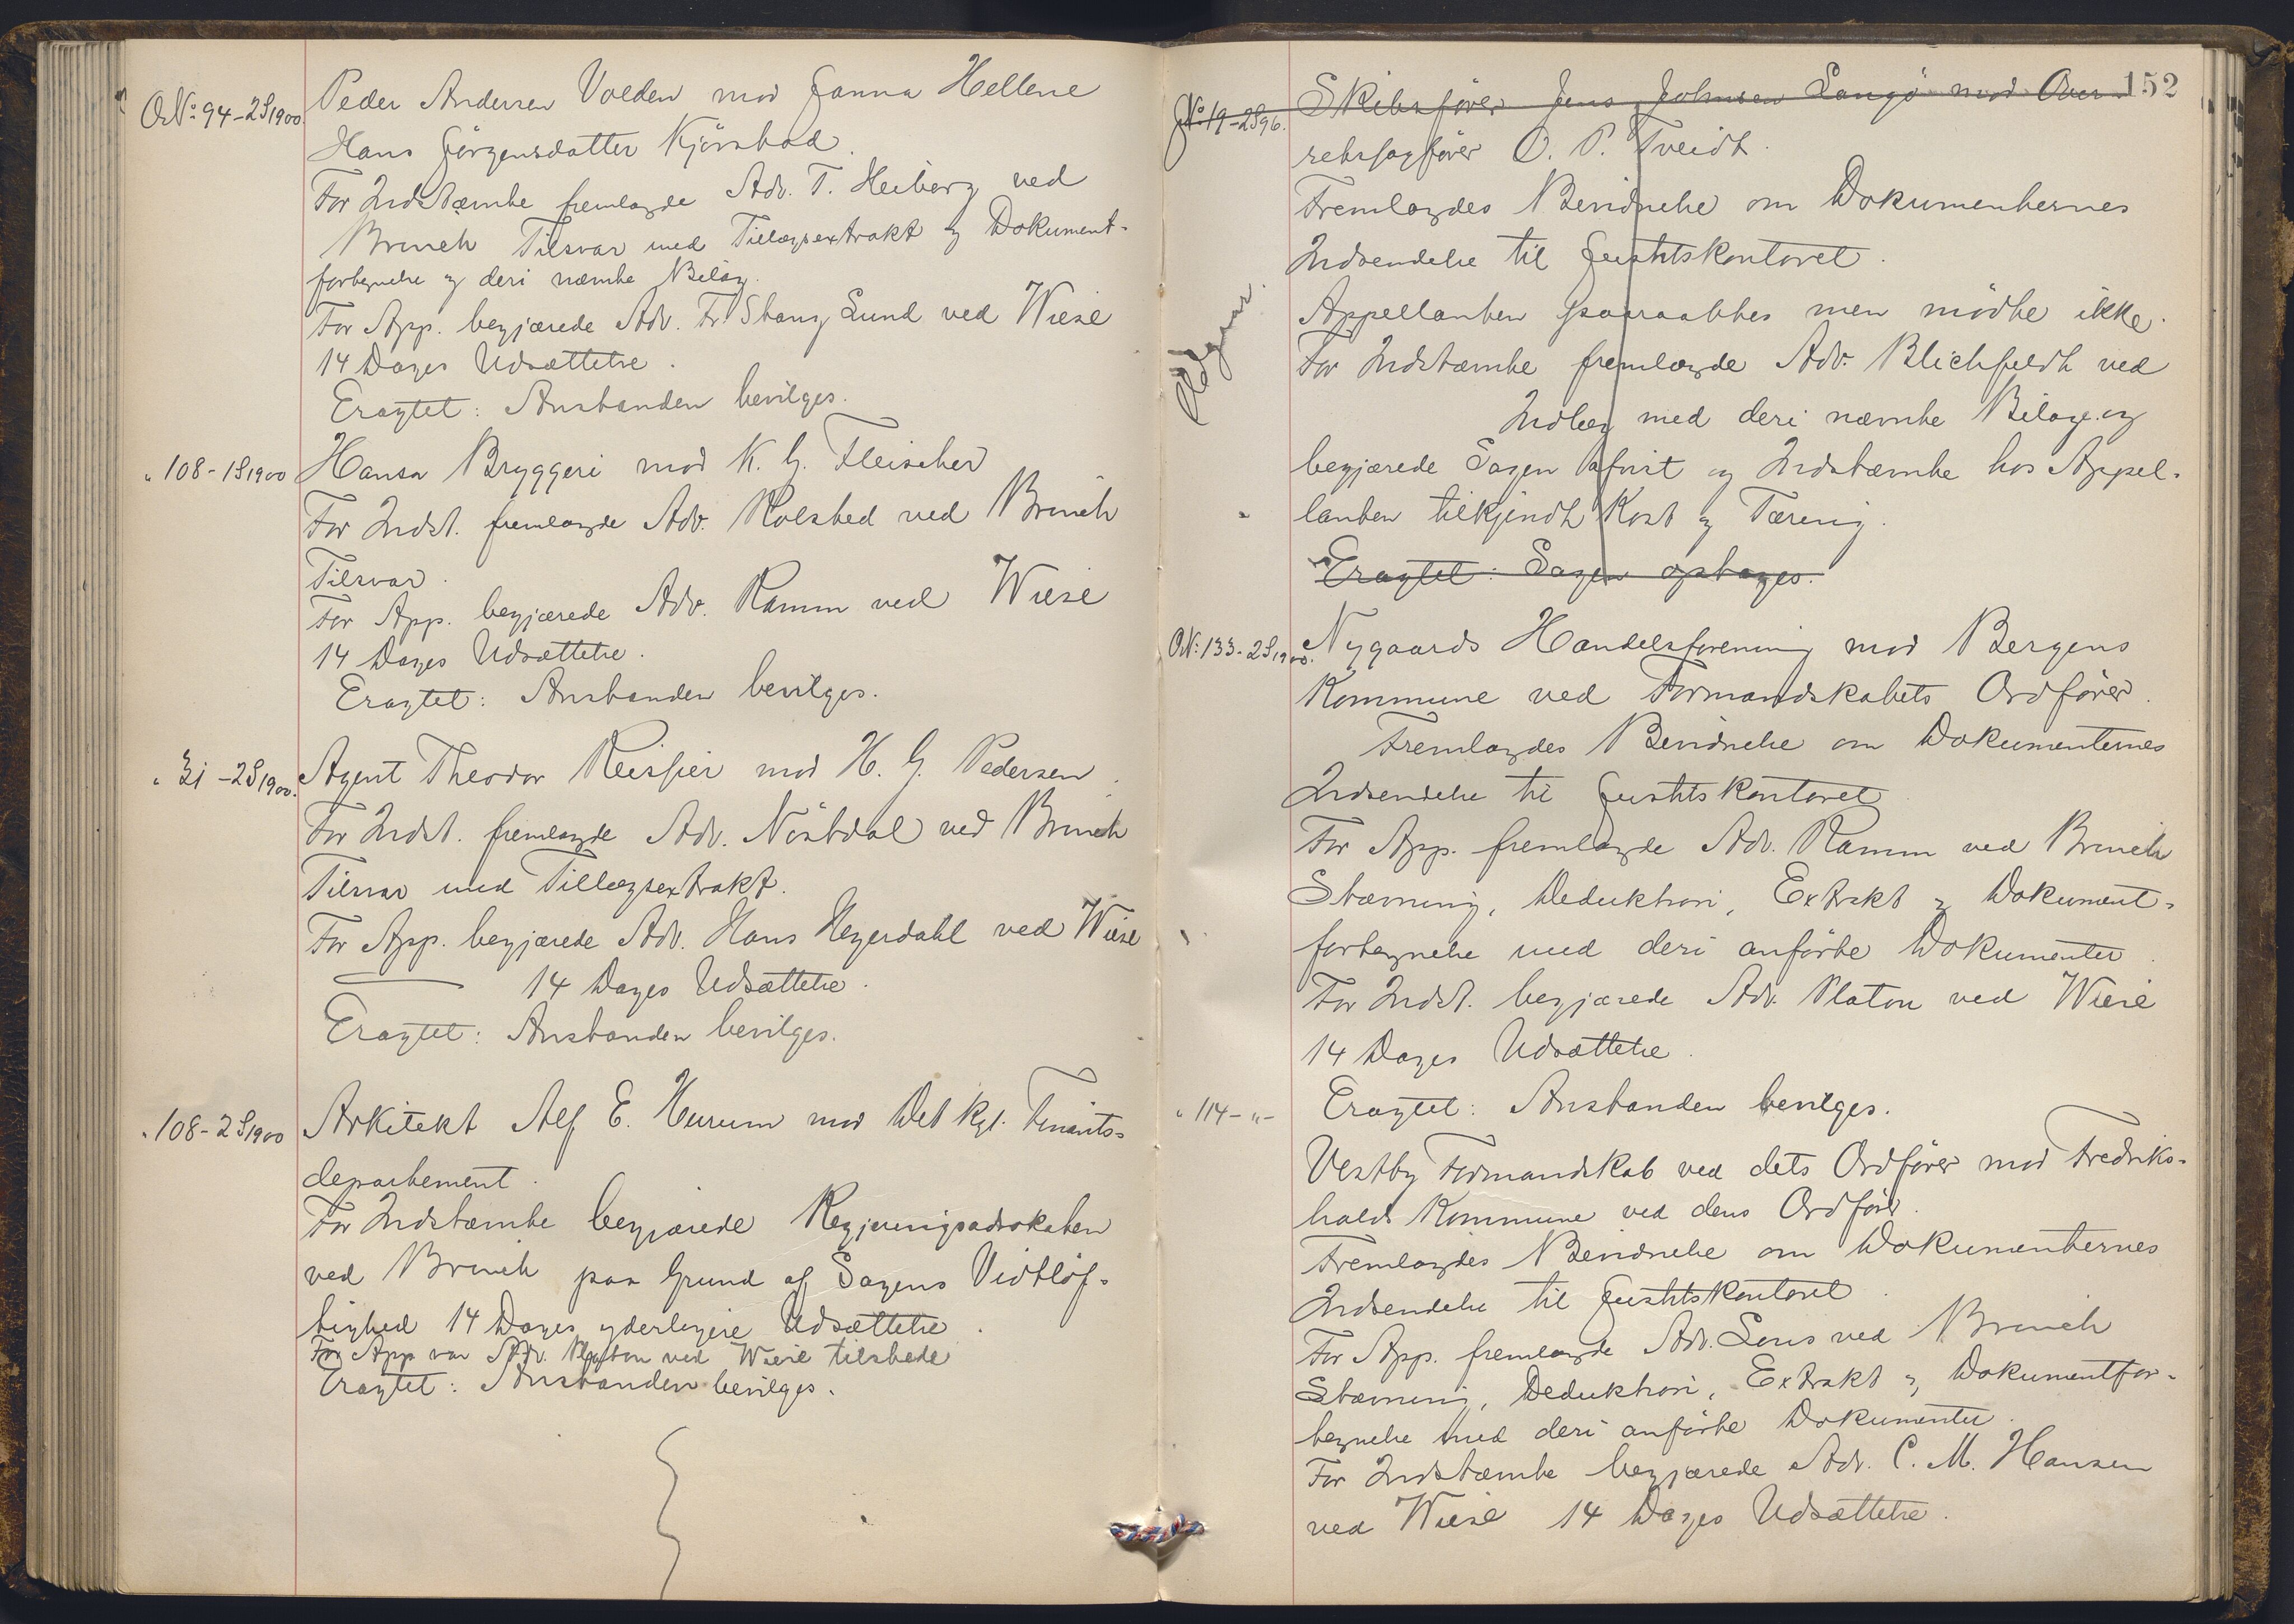 O.No. 94-2S1900. Peder Andersen Volden mod Janna Hellene
Hans Jörgensdatter Kjörstad.
For Indstæmte fremlagde Adv. T. Heiberg ved
Brinch Tilsvar med Tillægsextrakt og Dokument-
fortegnelse og deri nævnte Bilag.
For App. begjærede Adv. Fr. Stang Lund ved Wiese
14 Dages Udsættelse.
Eragtet: Anstanden bevilges.
" 108-1S1900 Hansa Bryggeri mod K. G. Fleischer
For Indst. fremlagde Adv. Rolsted ved Brinch
Tilsvar.
For App. begjærede Adv. Ramm ved Wiese
14 Dages Udsættelse.
Eragtet: Anstanden bevilges.
" 31-2S1900. Agent Theodor Reissier mod H. G. Pedersen.
For Indst. fremlagde Adv. Nöstdal ved Brinch
Tilsvar med Tillægsextrakt.
For App. begjærede Adv. Hans Heyerdahl ved Wiese
14 Dages Udsættelse.
Eragtet: Anstanden bevilges.
" 108-2S1900 Arkitekt Alf E. Hurum mod Det kgl. Finants-
departement.
For Indstæmte begjærede Regjeringsadvokaten
ved Brinch paa Grund af Sagens Vidtløf-
tighed 14 Dages yderligere Udsættelse.
For App var Adv. Platou ved Wiese tilstede
Eragtet: Anstanden bevilges.
152
No. 19-2S96. Skibsfører Jens Johnsen Langö mod Over-
retssagfører O. P. Tveidt.
Fremlagdes Bevidnelse om Dokumenternes
Indsendelse til Justitskontoret.
Appellanten paaraabtes men mödte ikke.
For Indstæmte fremlagde Adv. Blichfeldt ved
Indlæg med deri nævnte Bilage og
begjærede Sagen afvist og Indstæmte hos Appel-
lanten tilkjendt Kost og Tæring.
Eragtet: Sagen optages.
O.N. 133-2S1900. Nygaards Handelsforening mod Bergens
Kommune ved Formandskabets Ordfører.
Fremlagdes Bevidnelse om Dokumenternes
Indsendelse til Justitskontoret
For App. fremlagde Adv. Ramm ved Brinch
Stævning, Deduktion, Extrakt og Dokument-
fortegnelse med deri anförte Dokumenter.
For Indst. begjærede Adv. Platou ved Wiese
14 Dages Udsættelse.
Eragtet: Anstanden bevilges.
" 114-"- Vestby Formandskab ved dets Ordfører mod Fredriks-
halds Kommune ved dens Ordfører.
Fremlagdes Bevidnelse om Dokumenternes
Indsendelse til Justitskontoret.
For App. fremlagde Adv. Lous ved Brinch
Stævning, Deduktion, Extrakt og Dokumentfor-
tegnelse med deri anförte Dokumenter.
For Indstæmte begjærede Adv. C. M. Hansen
ved Wiese 14 Dages Udsættelse.